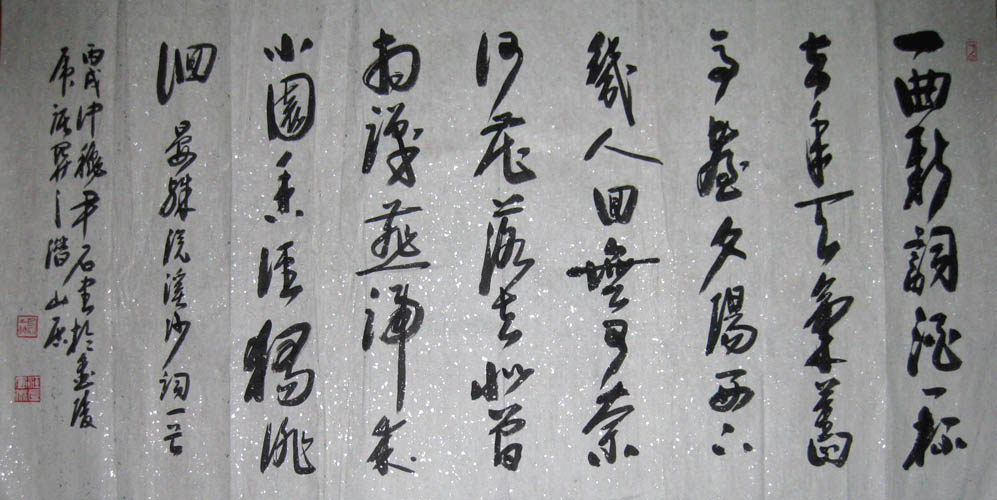 一曲新詞酒一杯
去年天氣舊
亭臺夕陽西下
幾人回無可奈
何花落去似曾
相識燕歸來
小園香徑獨徘
徊 晏殊浣溪沙詞一首
丙戌仲穐尹石書於金陵
之潛山居